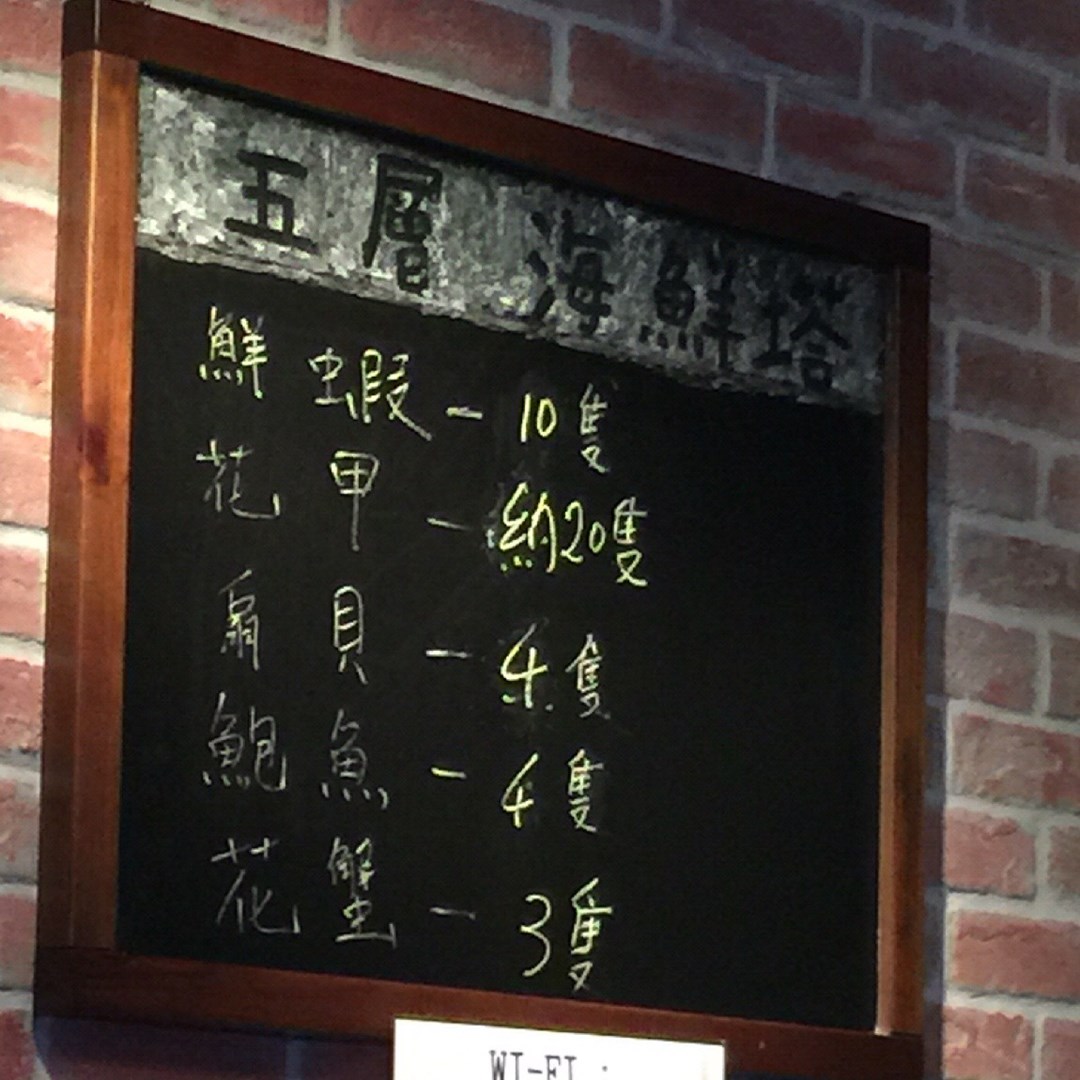 五層海鮮塔
鮮蝦 - 10隻
花甲 - 約20隻
扇貝 - 4隻
鮑魚 - 4隻
花蟹 - 3隻
WI-FI :